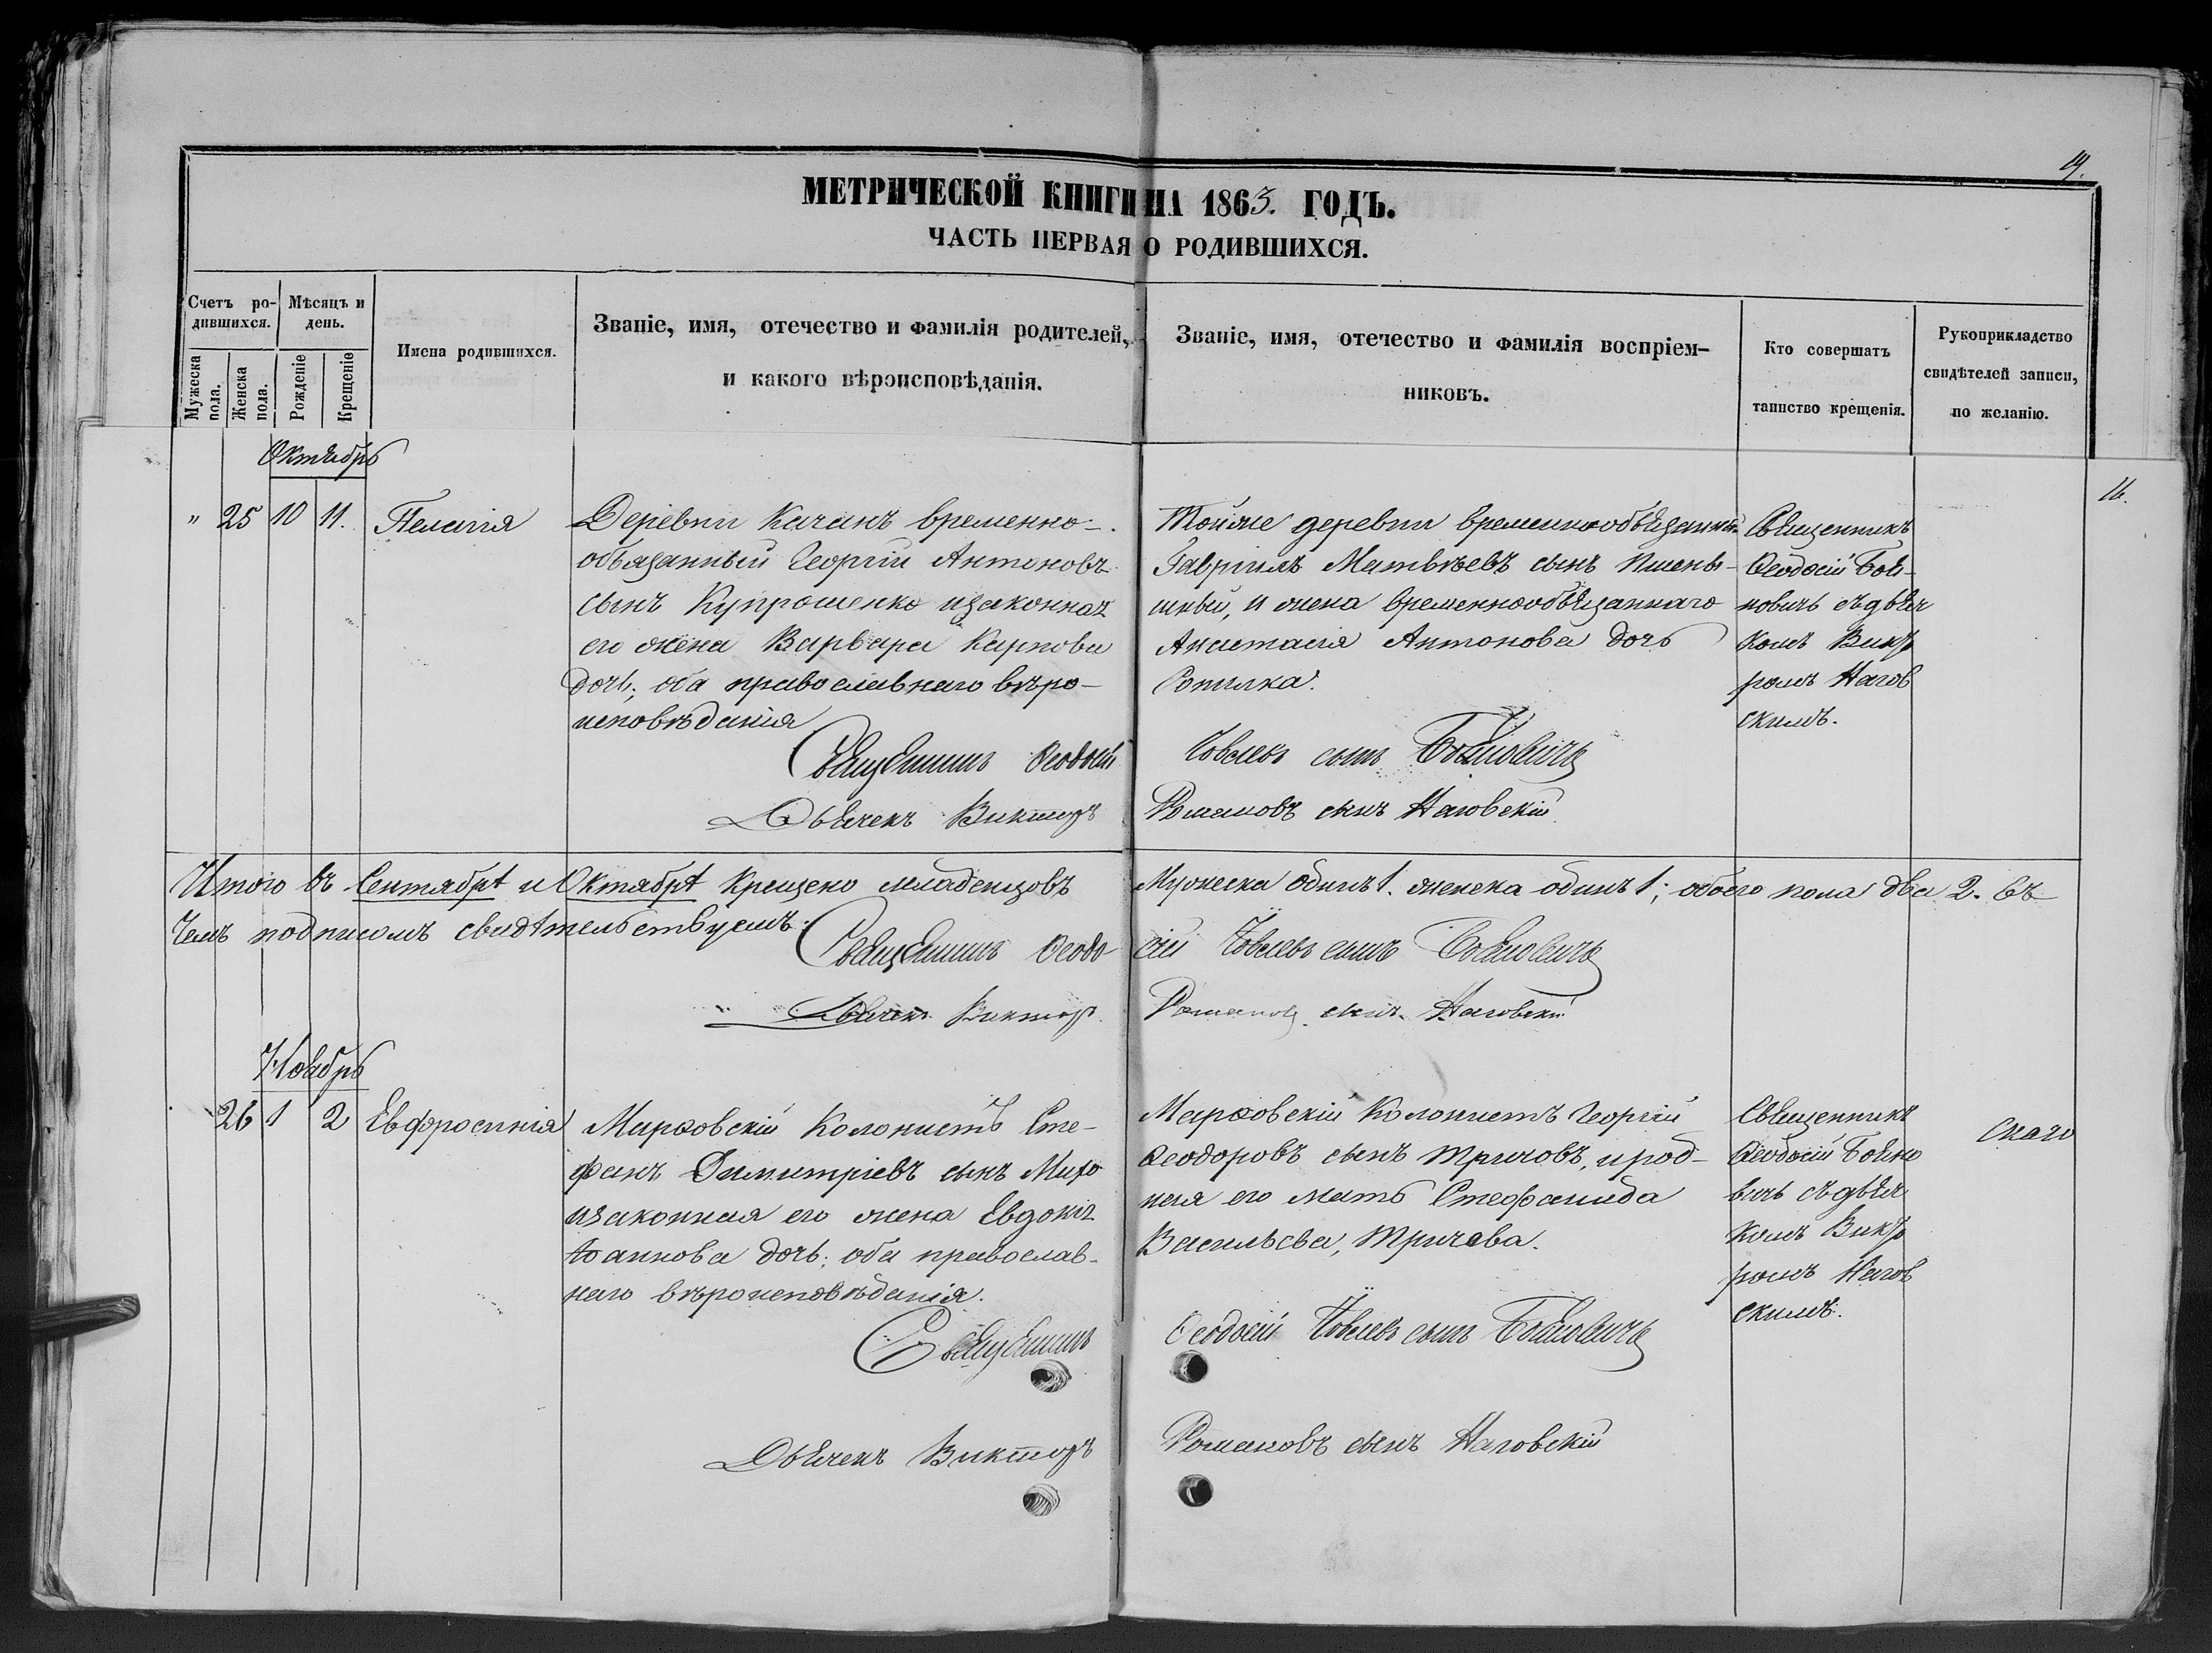 19.
МЕТРИЧЕСКОЙ КНИГИ НА 1863. ГОДЪ.
ЧАСТЬ ПЕРВАЯ О РОДИВШИХСЯ.
Счетъ родившихся.
Мужеска пола.
Женска пола.
Мѣсяцъ и день.
Рожденіе
Крещеніе
Имена родившихся.
Званіе, имя, отечество и фамилія родителей,
и какого вѣроисповѣданія.
Званіе, имя, отечество и фамилія воспріем-
никовъ.
Кто совершатъ
таинство крещенія.
Рукоприкладство
свидѣтелей записи,
по желанію.
Октябрь
" 25 10 11. Пелагія
Деревни Качанъ временно-
обязанный Георгіи Антоновъ
сынъ Купрошенко и законная
его жена Варвара Карпова
дочь; оба православнаго вѣро-
исповѣданія
Священникъ Ѳеодосій
Дьячекъ Викторъ
Тойже деревни временнообязанный
Гавріилъ Матвѣевъ сынъ
и жена временнообязаннаго
Анастасія Антонова дочь
Сынъ Бойновичъ
Романовъ сынъ Наговскій
Священникъ
Ѳеодосій Бой-
новичъ съ дьяч
комъ Вик
ромъ Нагов
скимъ.
16.
Итого въ Сентябрѣ и Октябрѣ крещено младенцовъ
Мужеска одинъ 1. женска одинъ 1; обоего пола два 2. Въ
Чемъ подписомъ свидѣтельствуемъ.
Священникъ Ѳеодо-
сій сынъ Бойновичъ
Дьячекъ Викторъ
Романовъ сынъ Наговскій
Ноябрь
26 1 2 Евфросинія
Маряовскій Колонистъ Сте-
фанъ Димитріевъ сынъ Михо
и законная его жена Евдокія
Іоаннова дочь; оба православ-
наго вѣроисповѣданія.
Священникъ
Дьячекъ Викторъ
Маряовскій Колонистъ Георгій
Ѳеодоровъ сынъ Тричовъ, и род-
ная его мать Стефанида
Васильева, Тричева.
Ѳеодосій сынъ Бойновичъ
Романовъ сынъ Наговскій
Священникъ
Ѳеодосій Бойно
вичъ съ дьяч
комъ Вик
ромъ Нагов
скимъ.
скаго